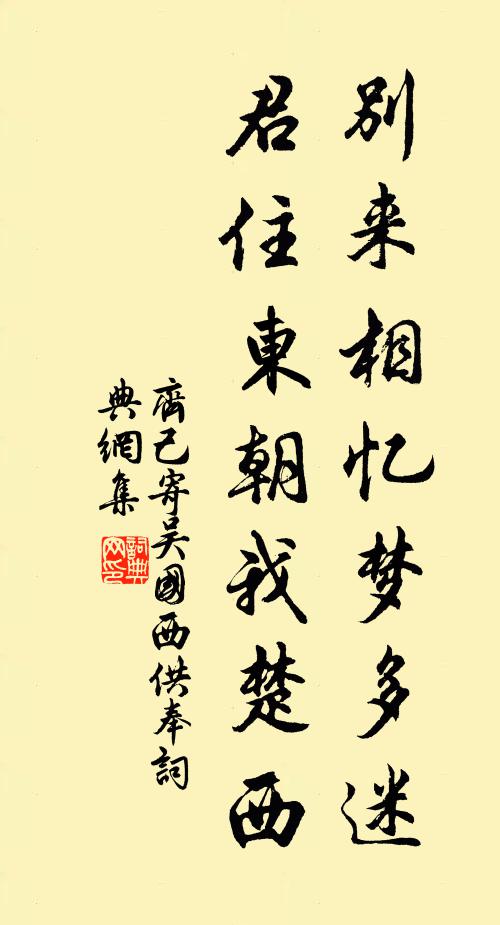 别来相忆梦多迷
君住東朝我楚西
齊己寄吴國西供奉詞
典網集
詞典
网印